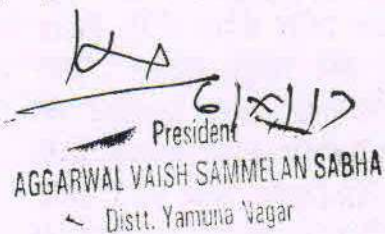 6/x/17
President
AGGARWAL VAISH SAMMELAN SABHA
Distt. Yamuna Nagar